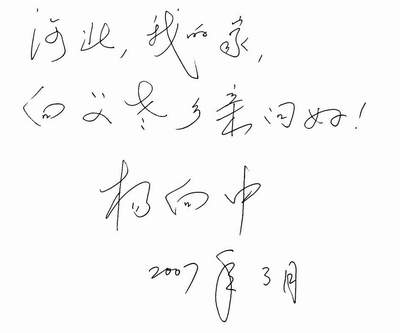 河北，我的家，
向父老乡亲问好！
杨向中
2007年3月